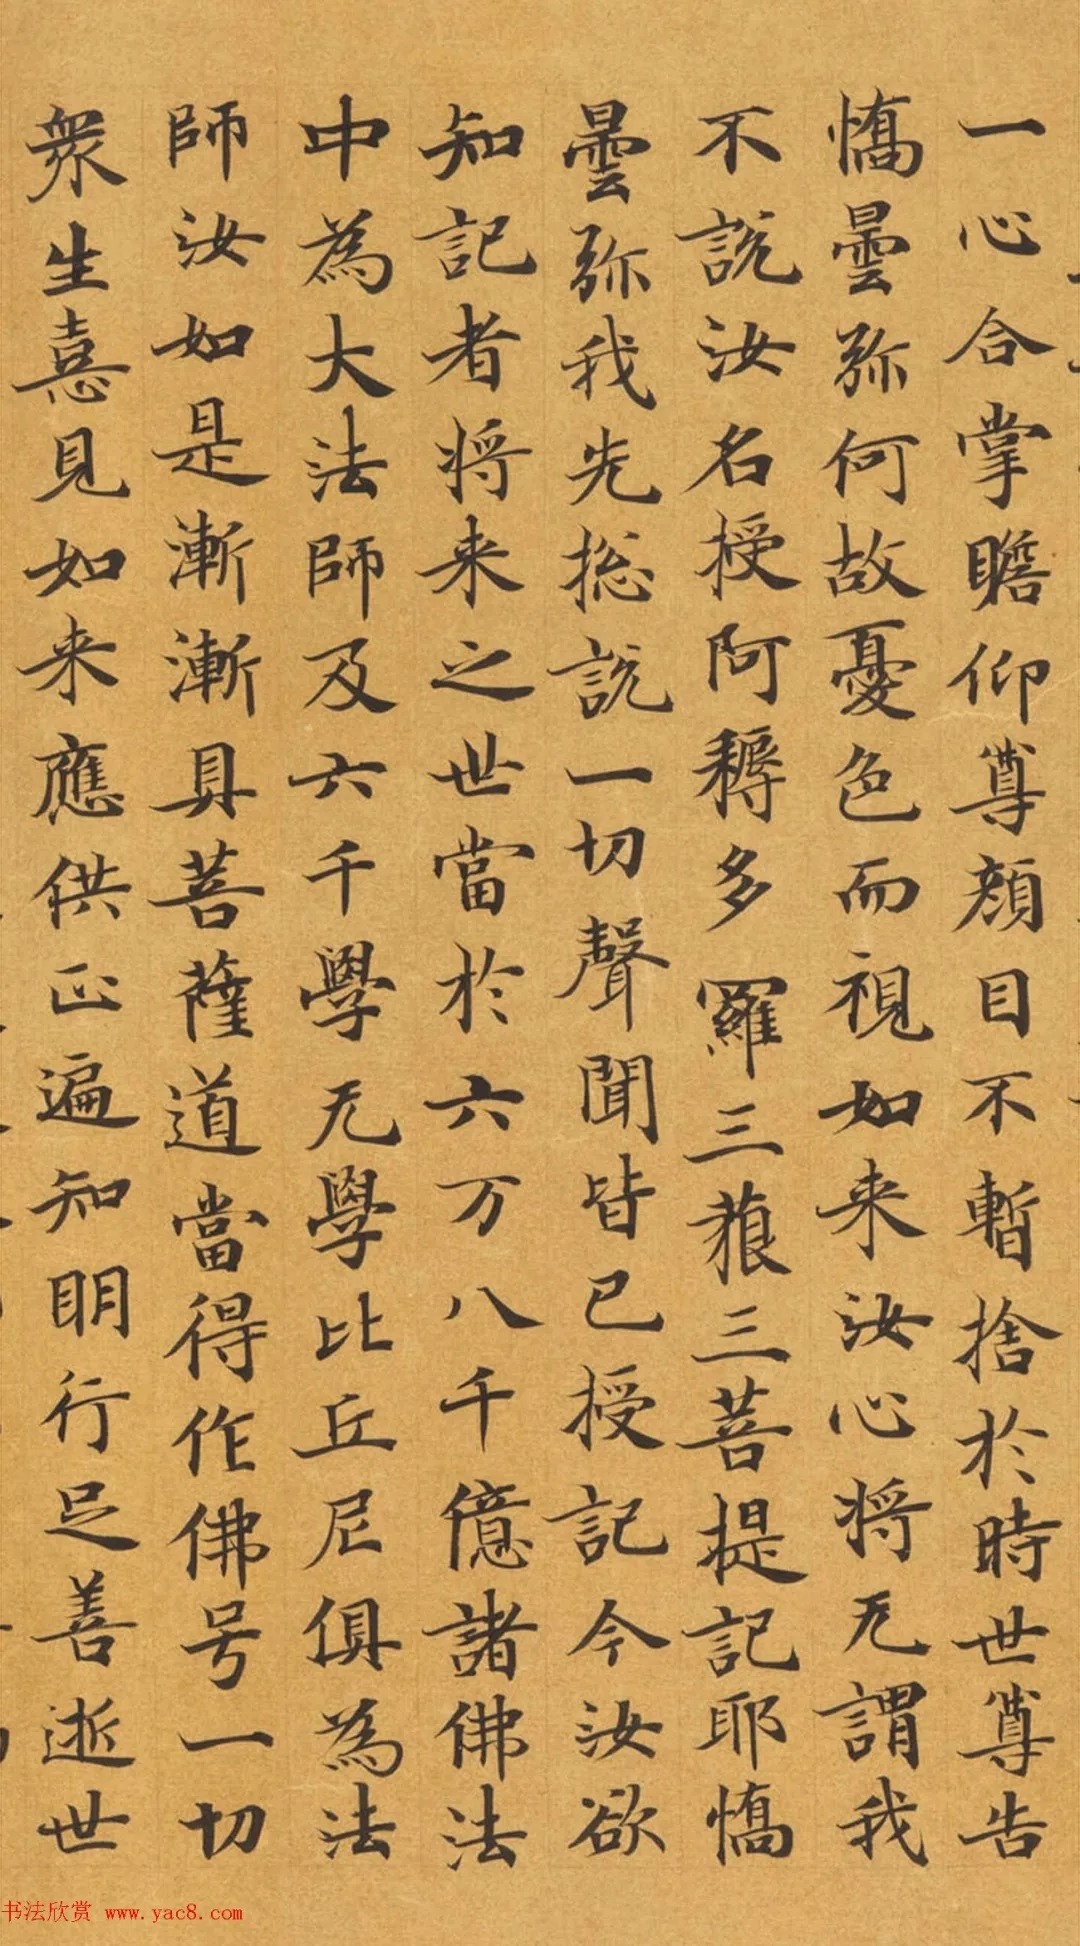 一心合掌瞻仰尊顔目不暫捨於時世尊告
憍曇弥何故憂色而視如来汝心将无謂我
不説汝名授阿耨多羅三藐三菩提記耶憍
曇弥我先捴説一切聲聞皆已授記今汝欲
知記者将来之世當於六万八千億諸佛法
中為大法師及六千學无學比丘尼俱為法
師汝如是漸漸具菩薩道當得作佛号一切
衆生憙見如来應供正遍知明行足善逝世
书法欣赏 www.yac8.com